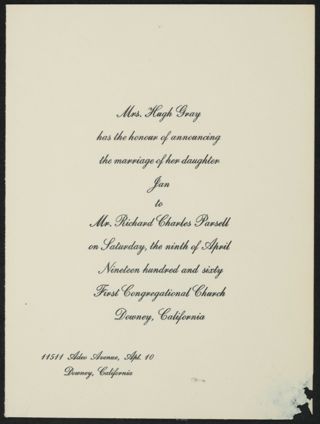 Mrs. Hugh Gray
has the honour of announcing
the marriage of her daughter
Jan
to
Mr. Richard Charles Parsell
on Saturday, the ninth of April
Nineteen hundred and sixty
First Congregational Church
Downey, California
11511 Adeo Avenue, Apt. 10
Downey, California